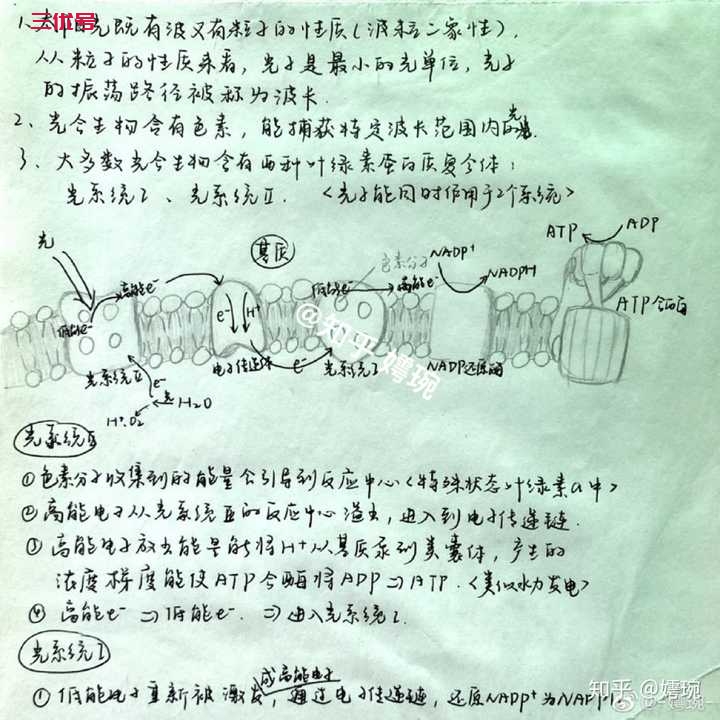 三优号
光既有波又有粒子的性质(波粒二象性),
从粒子的性质来看,光子是最小的光单位,光子
的振荡路径被称为波长.
2、光合生物含有色素,能捕获特定波长范围内的光.
3、大多数光合生物含有两种叶绿素蛋白质复合体:
光系统I、光系统II. <光子能同时作用于2个系统>
光
基质
色素分子
NADP⁺
NADPH
ATP
ADP
低能e⁻
高能e⁻
e⁻
H⁺
低能e⁻
高能e⁻
ATP合酶
光系统II
电子传递体
e⁻
光系统I
NADP还原酶
e⁻
H₂O
H⁺、O₂
@知乎 嫮琬
光系统II
①色素分子收集到的能量会引导到反应中心<特殊状态叶绿素a中>
②高能电子从光系统II的反应中心溢出,进入到电子传递链.
③高能电子放出能量能将H⁺从基质泵到类囊体,产生的
浓度梯度能使ATP合酶将ADP⇒ATP.<类似水力发电>
④高能e⁻⇒低能e⁻.⇒进入光系统I.
光系统I
成高能电子
①低能电子重新被激发,通过电子传递链,还原NADP⁺为NADPH.
知乎 @嫮琬